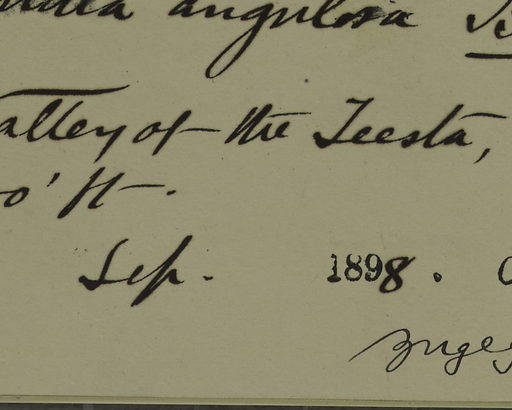 angulosa
alley of the Teesta,
0' ft.
Sep. 1898.